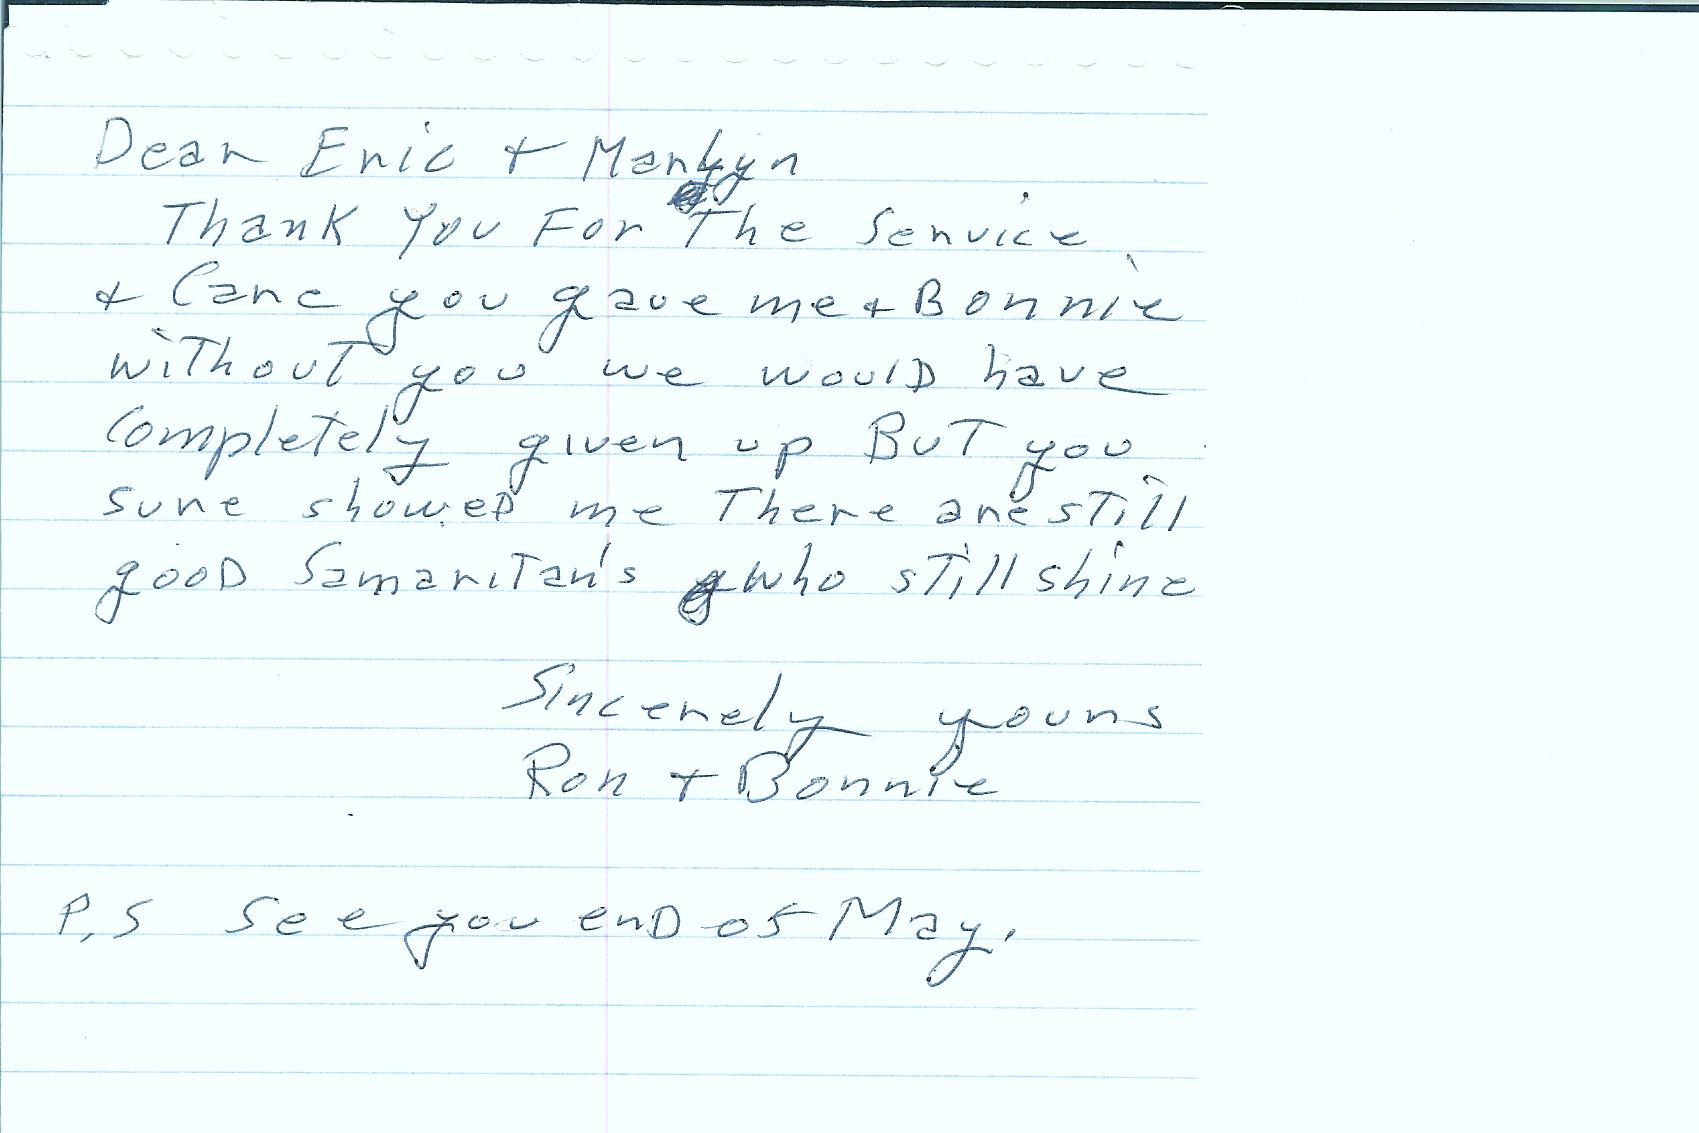 Dear Eric + Marilyn
Thank You For The Service
+ Care you gave me + Bonnie
without you we would have
Completely given up BuT you
sure showeD me There are sTill
gooD Samaritan's who sTill shine
Sincerely yours
Ron + Bonnie
P,S See you enD of May.